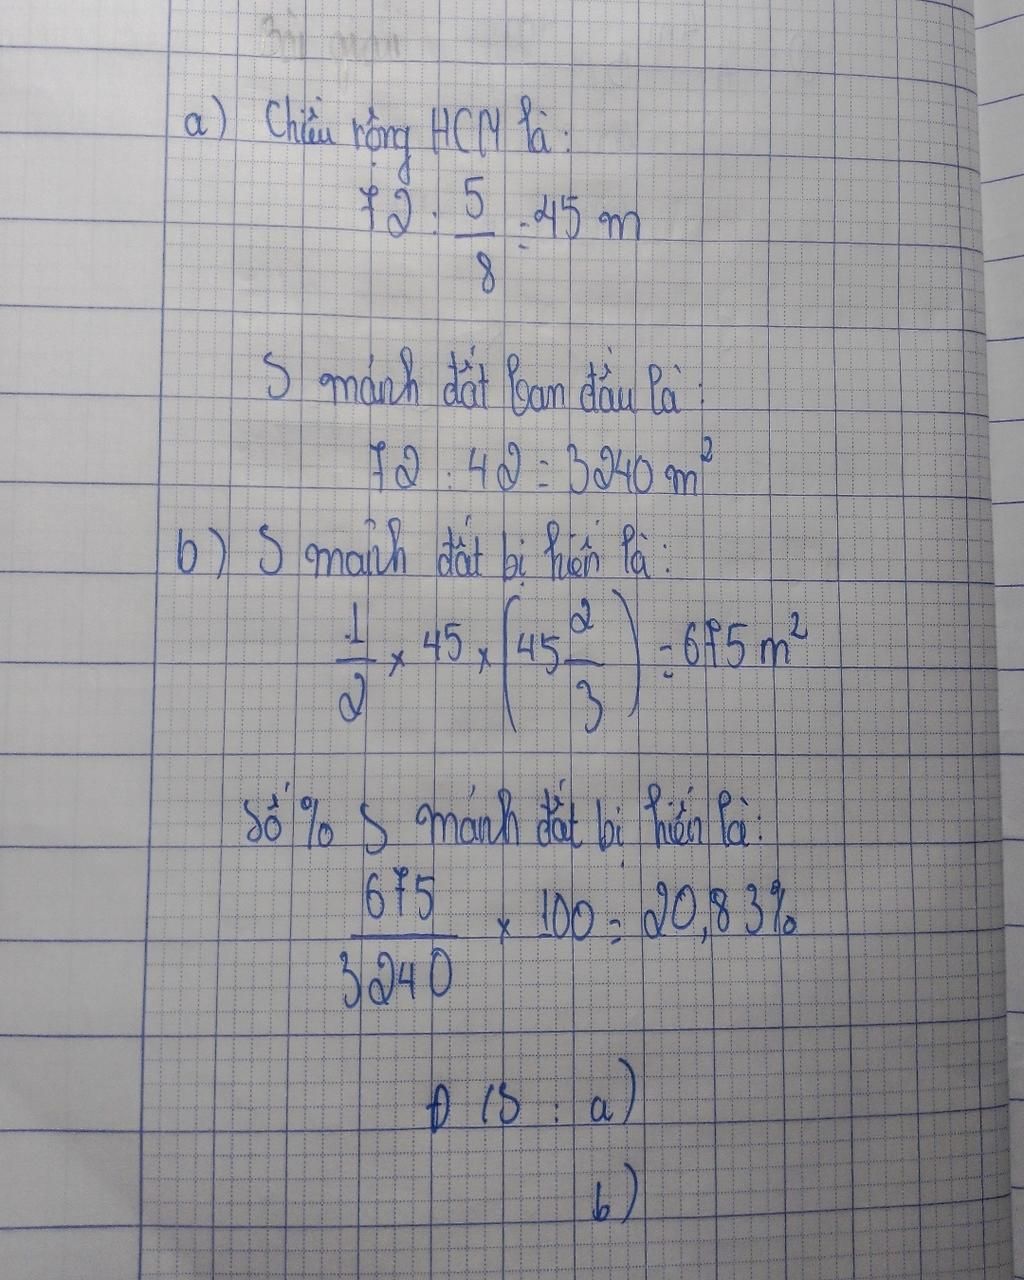 a) Chiều rộng HCN là:
72 . 5/8 = 45 m
S mảnh đất ban đầu là:
72 . 42 = 3240 m²
b) S mảnh đất bị hiến là:
1/2 × 45 × (45 2/3) = 675 m²
Số % S mảnh đất bị hiến là:
675/3240 × 100 = 20,83%
Đ/S : a)
b)